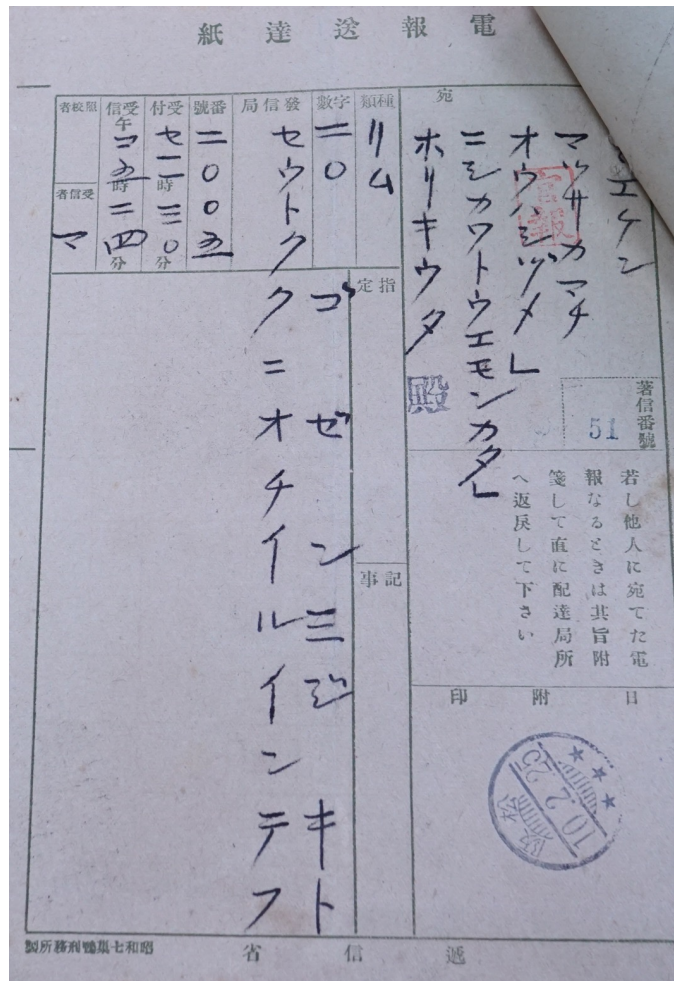 電報送達紙
宛
エケン
マツサカマチ
オウハシヅメ」
ニシカワトウエモンカタ」
ホリキウタ 殿
官報
著信番號
51
若し他人に宛てた電
報なるときは其旨附
箋して直に配達局所
へ返戻して下さい
日附印
10.2.25
種類
リム
字數
二〇
發信局
セウトク
番號
二〇〇五
受付
時三〇分
受信
午コ五時二四分
照校者
受信者
マ
指定
記事
ゴゼン三ジキト
クニオチイルインテフ
遞信省
昭和七巢鴨刑務所製